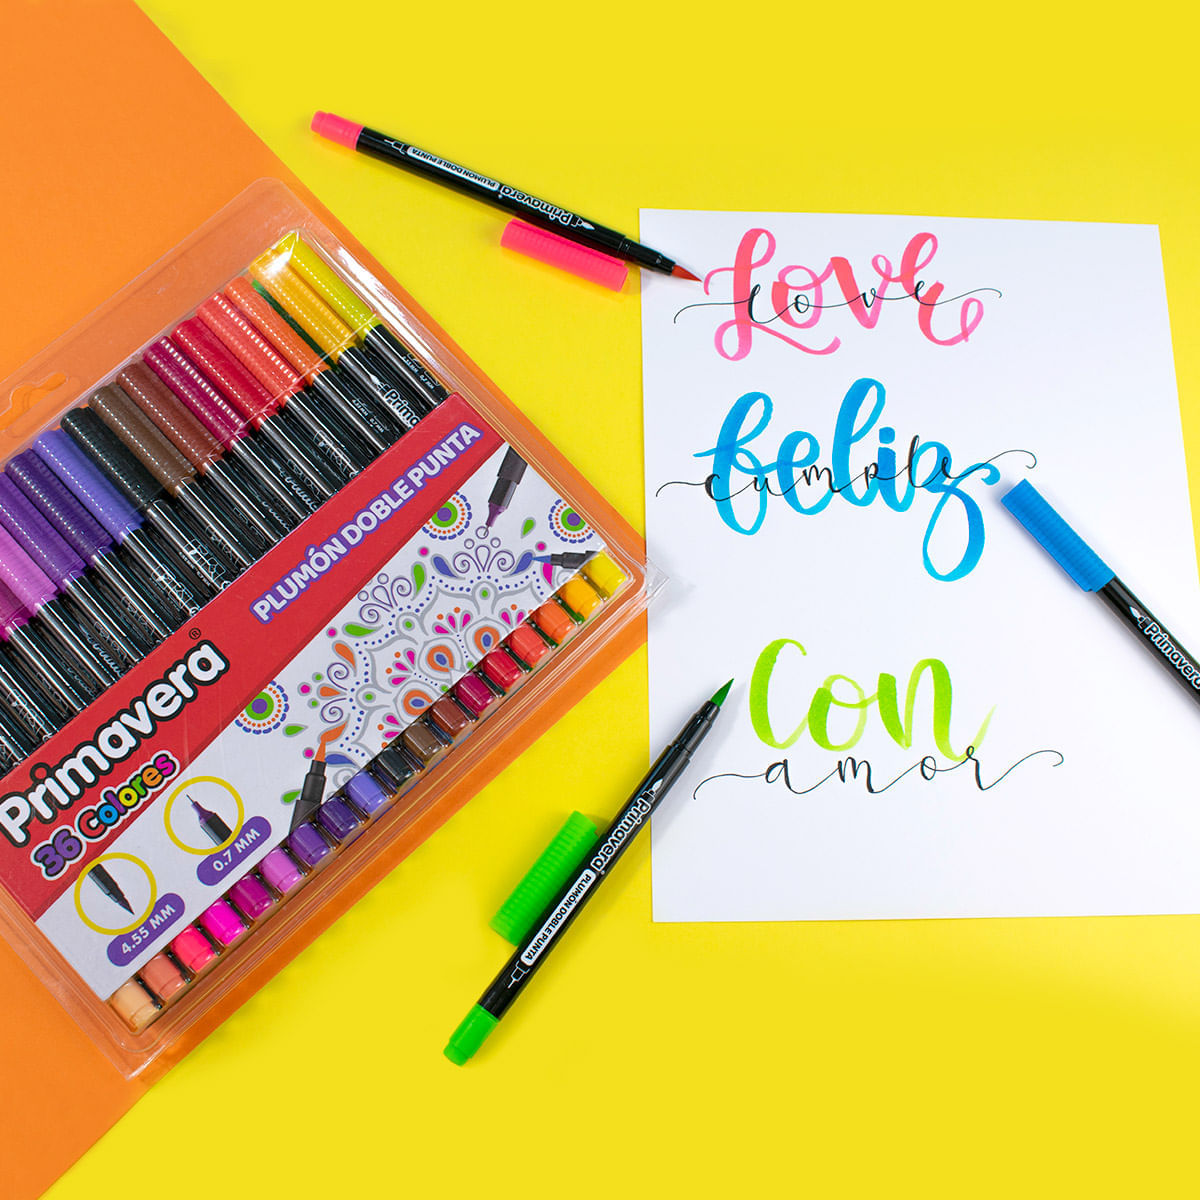 Primavera®
36 Colores
PLUMÓN DOBLE PUNTA
4.55 MM
0.7 MM
Primavera PLUMÓN DOBLE PUNTA
Love
love
feliz
cumple
Con
amor
Primavera
Primavera PLUMÓN DOBLE PUNTA